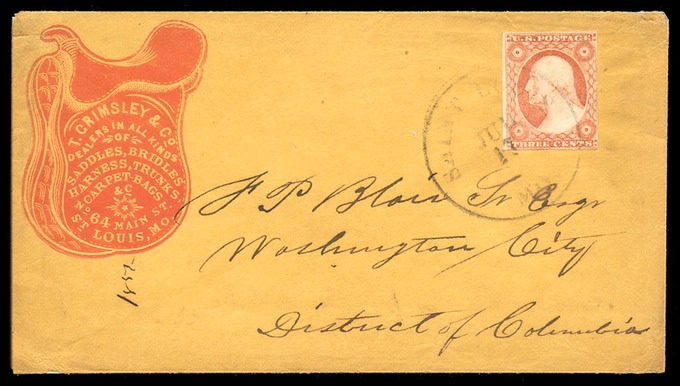 T. GRIMSLEY & Co
DEALERS IN ALL KINDS
OF
SADDLES, BRIDLES,
HARNESS, TRUNKS,
CARPET-BAGS
&C
No 64 MAIN ST.
ST LOUIS, MO.
U.S. POSTAGE
THREE CENTS
SAINT
JUL
17
MO.
F P Blair Sr Esqr
Washington City
District of Columbia